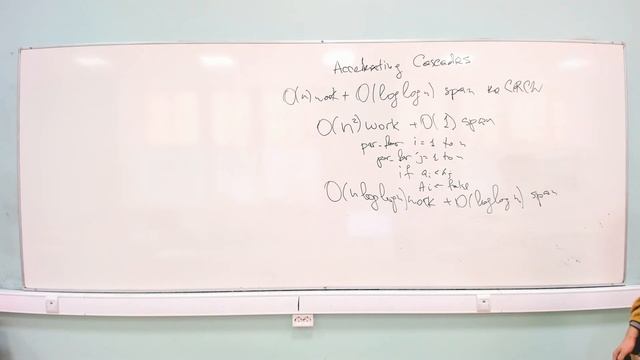 Accelerating Cascades
O(n) work + O(log log n) span на CRCW
O(n²) work + O(1) span
par-for i = 1 to n
par-for j = 1 to n
if aᵢ < aⱼ
Aᵢ ← false
O(n log log n) work + O(log log n) span